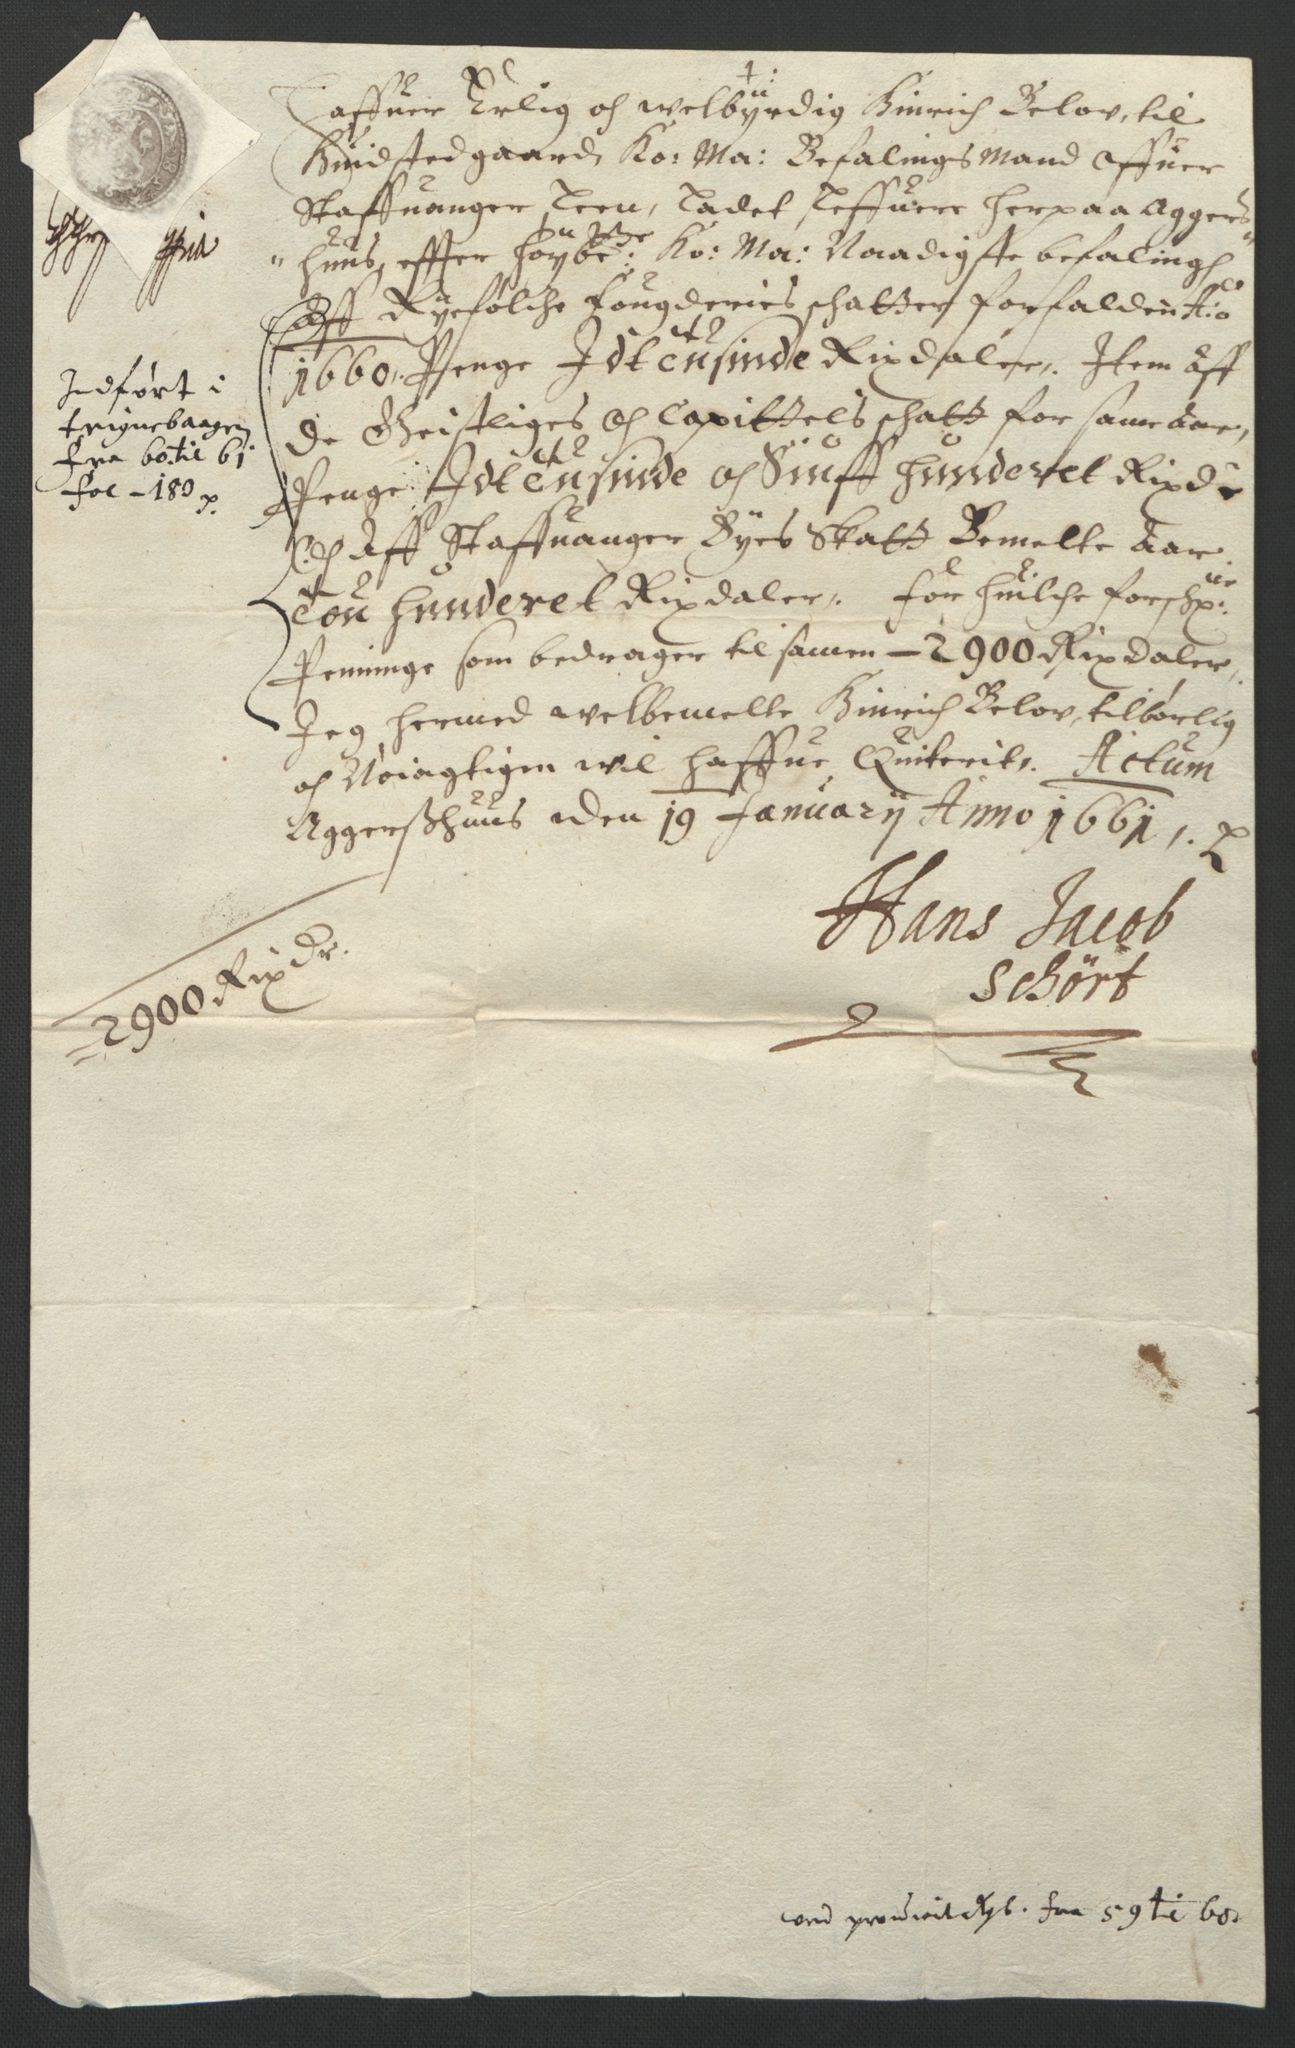 Haffuer Erlig och welbÿrdig Hinrich Belov, til
Huidstedgaard, Ko: Ma: Befalings Mand Offuer
Staffuanger Leen, Ladet Leffuere her paa Aggers
huus, effter høÿbe: Ko: Ma: Naadigste befalingh
Aff Rÿefølche fougderies schatter forfalden Ao
1660. Penge Idtusinde Rixdaler. Item Aff
de Geistliges och Capittels schatt for same Aar,
Penge Idtusinde och Siuff hunderet Rixdr
Och Aff Staffuanger Bÿes Skatt Bemelte Aar
Tou hunderet Rixdaler. for huilche forschr:
Penninge som bedrager tilsamen - 2900 Rixdaler
Jeg hermed welbemelte Hinrich Belov, tilbørlig
och Nøiagtigen wil haffue Quiterit. Actum
Aggerßhuus den 19 Januarij Anno 1661.
Hans Jacob
Schört
2900 Rix Dr.
Indført i
fra 60 til 61
fol - 180
fra 59 til 60